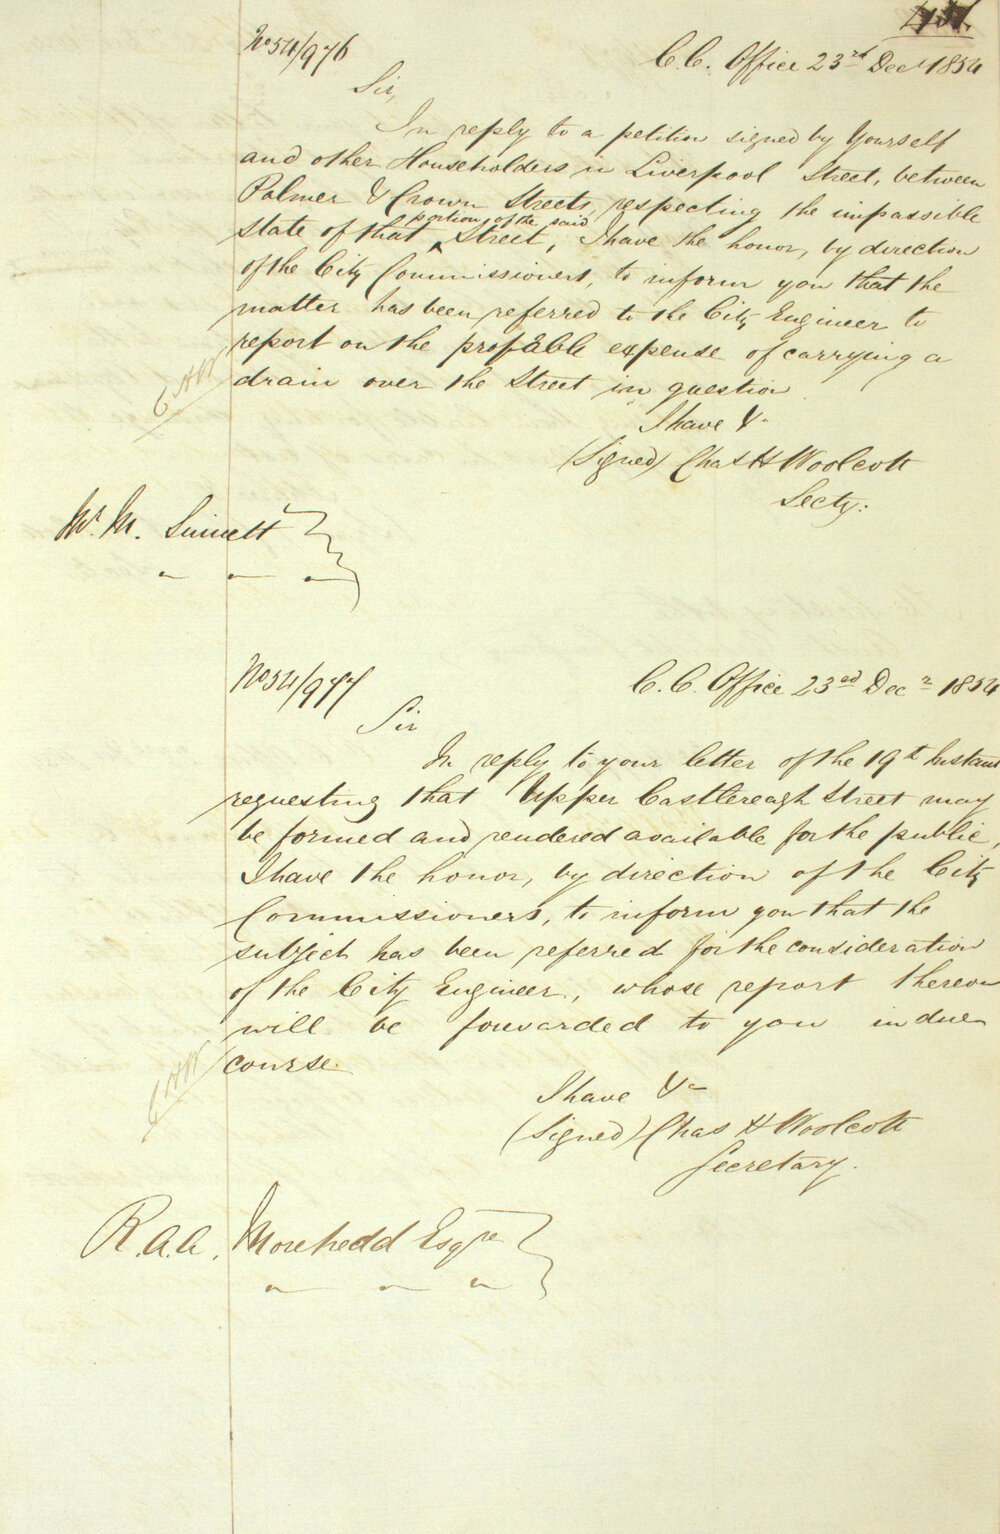 No 54/976
C.C. Office 23rd Decr 1854
Sir,
In reply to a petition signed by Yourself
and other Householders in Liverpool Street, between
Palmer & Crown Streets, respecting the impassible
portion of the said
state of that ^ Street, I have the honor, by direction
of the City Commissioners, to inform you that the
matter has been referred to the City Engineer to
report on the probable expense of carrying a
drain over the Street in question.
I have &c
(Signed) Chas H Woolcott
Secty:
CHW
Mr. M. Sinnett
No 54/977
C.C. Office 23rd Decr 1854
Sir
In reply to your letter of the 19th Instant
requesting that Upper Castlereagh Street may
be formed and rendered available for the public,
I have the honor, by direction of the City
Commissioners, to inform you that the
subject has been referred for the consideration
of the City Engineer, whose report thereon
will be forwarded to you in due
course.
CHW
I have &c
(Signed) Chas H Woolcott
Secretary.
R.A.A. Morehedd Esqre